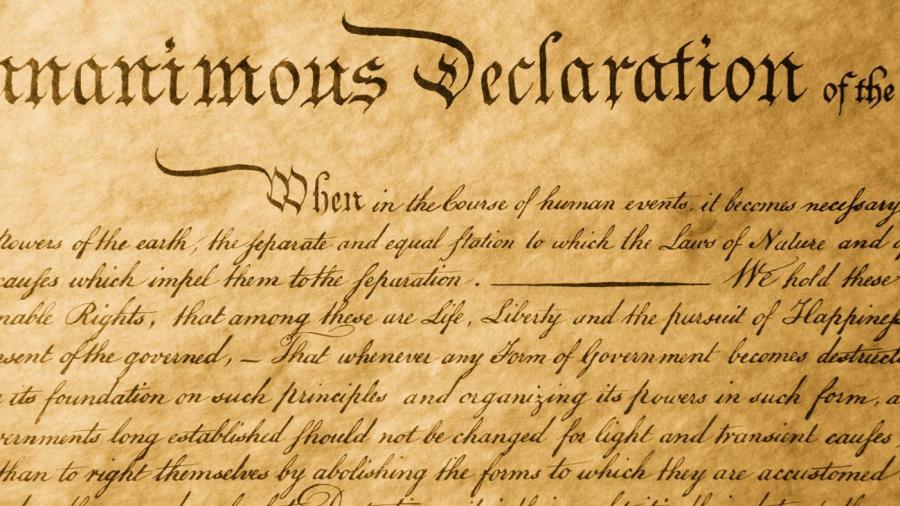 nanimous Declaration of the
When in the Course of human events, it becomes necessary
Powers of the earth, the separate and equal station to which the Laws of Nature and of
causes which impel them to the separation. ——— We hold these
nable Rights, that among these are Life, Liberty and the pursuit of Happiness
nsent of the governed, — That whenever any Form of Government becomes destructi
its foundation on such principles and organizing its powers in such form, a
vernments long established should not be changed for light and transient causes
than to right themselves by abolishing the forms to which they are accustomed